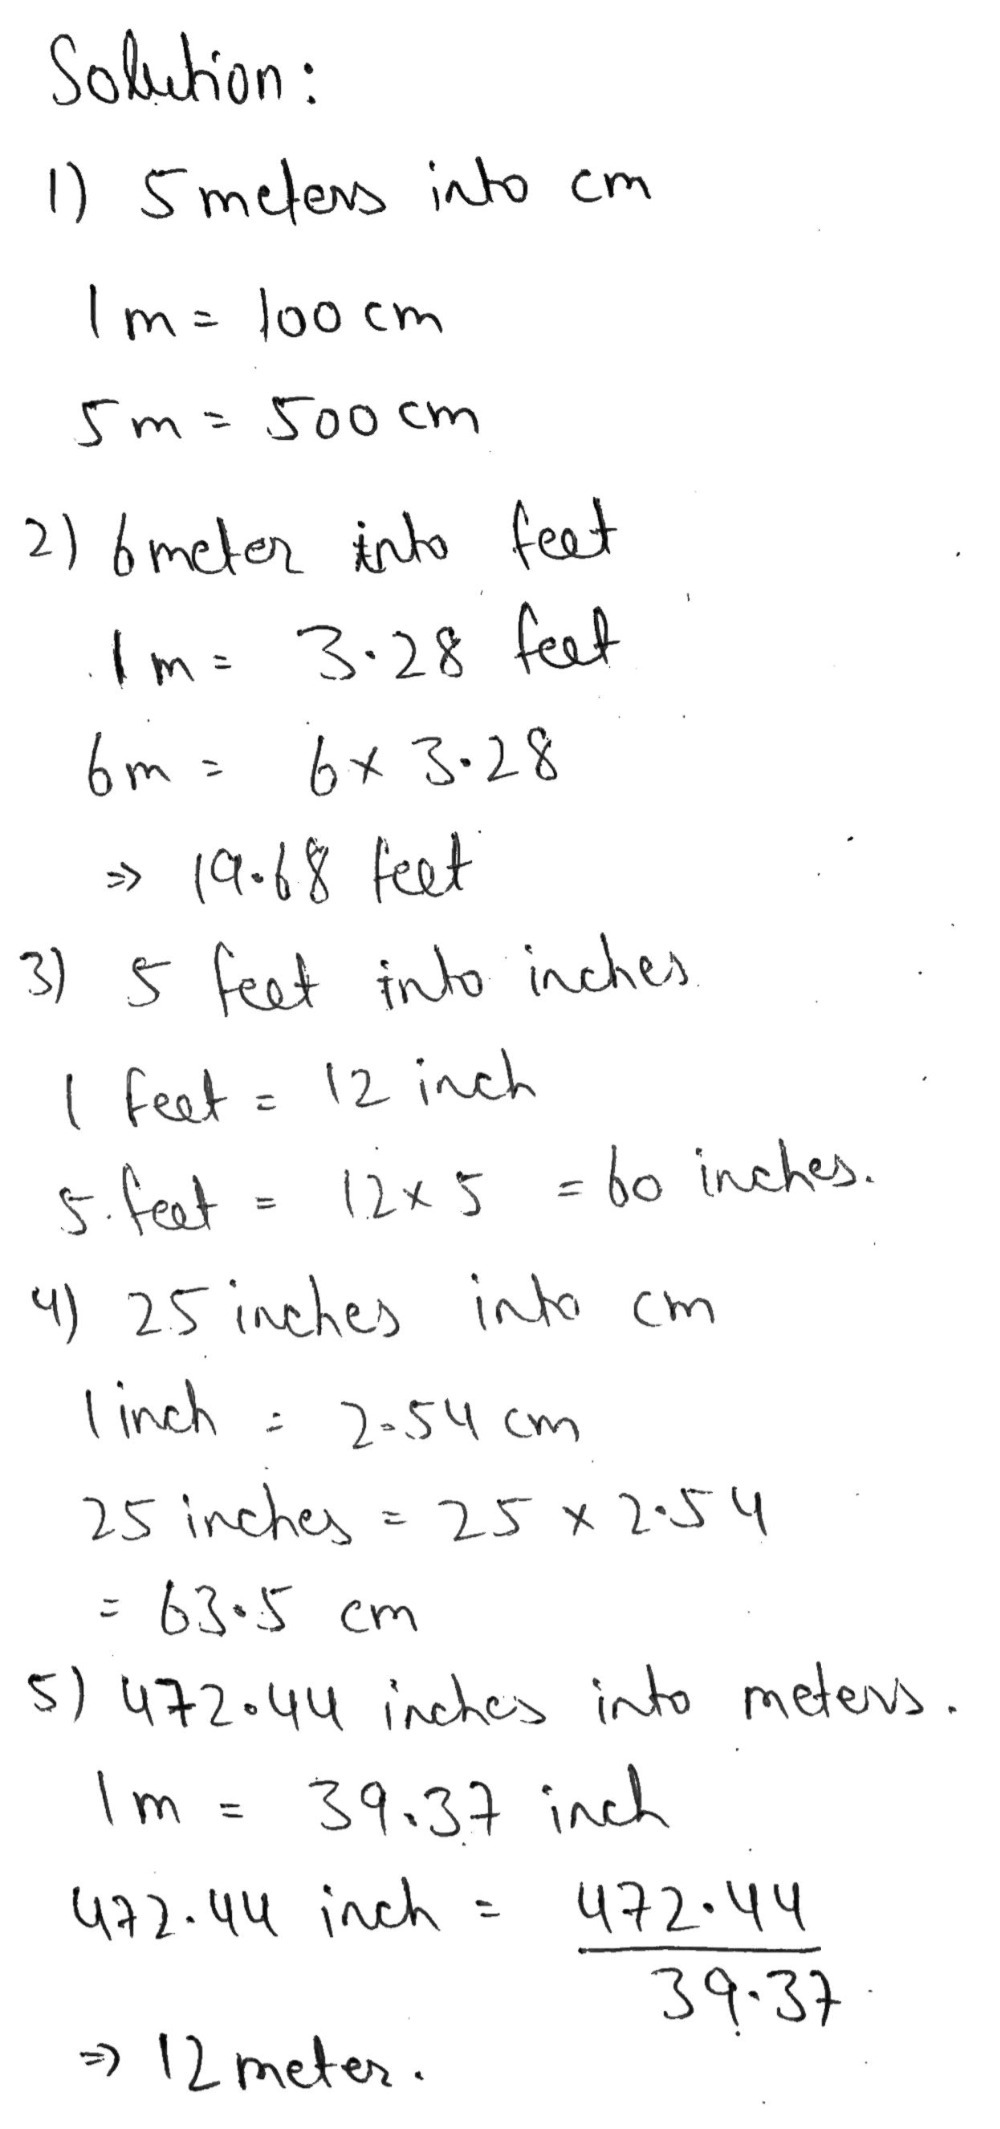 Solution:
1) 5 meters into cm
1 m = 100 cm
5 m = 500 cm
2) 6 meter into feet
1 m = 3.28 feet
6 m = 6 x 3.28
⇒ 19.68 feet
3) 5 feet into inches
1 feet = 12 inch
5. feet = 12 x 5 = 60 inches.
4) 25 inches into cm
1 inch = 2.54 cm
25 inches = 25 x 2.54
= 63.5 cm
5) 472.44 inches into meters.
1 m = 39.37 inch
472.44 inch = 472.44
39.37
⇒ 12 meter.